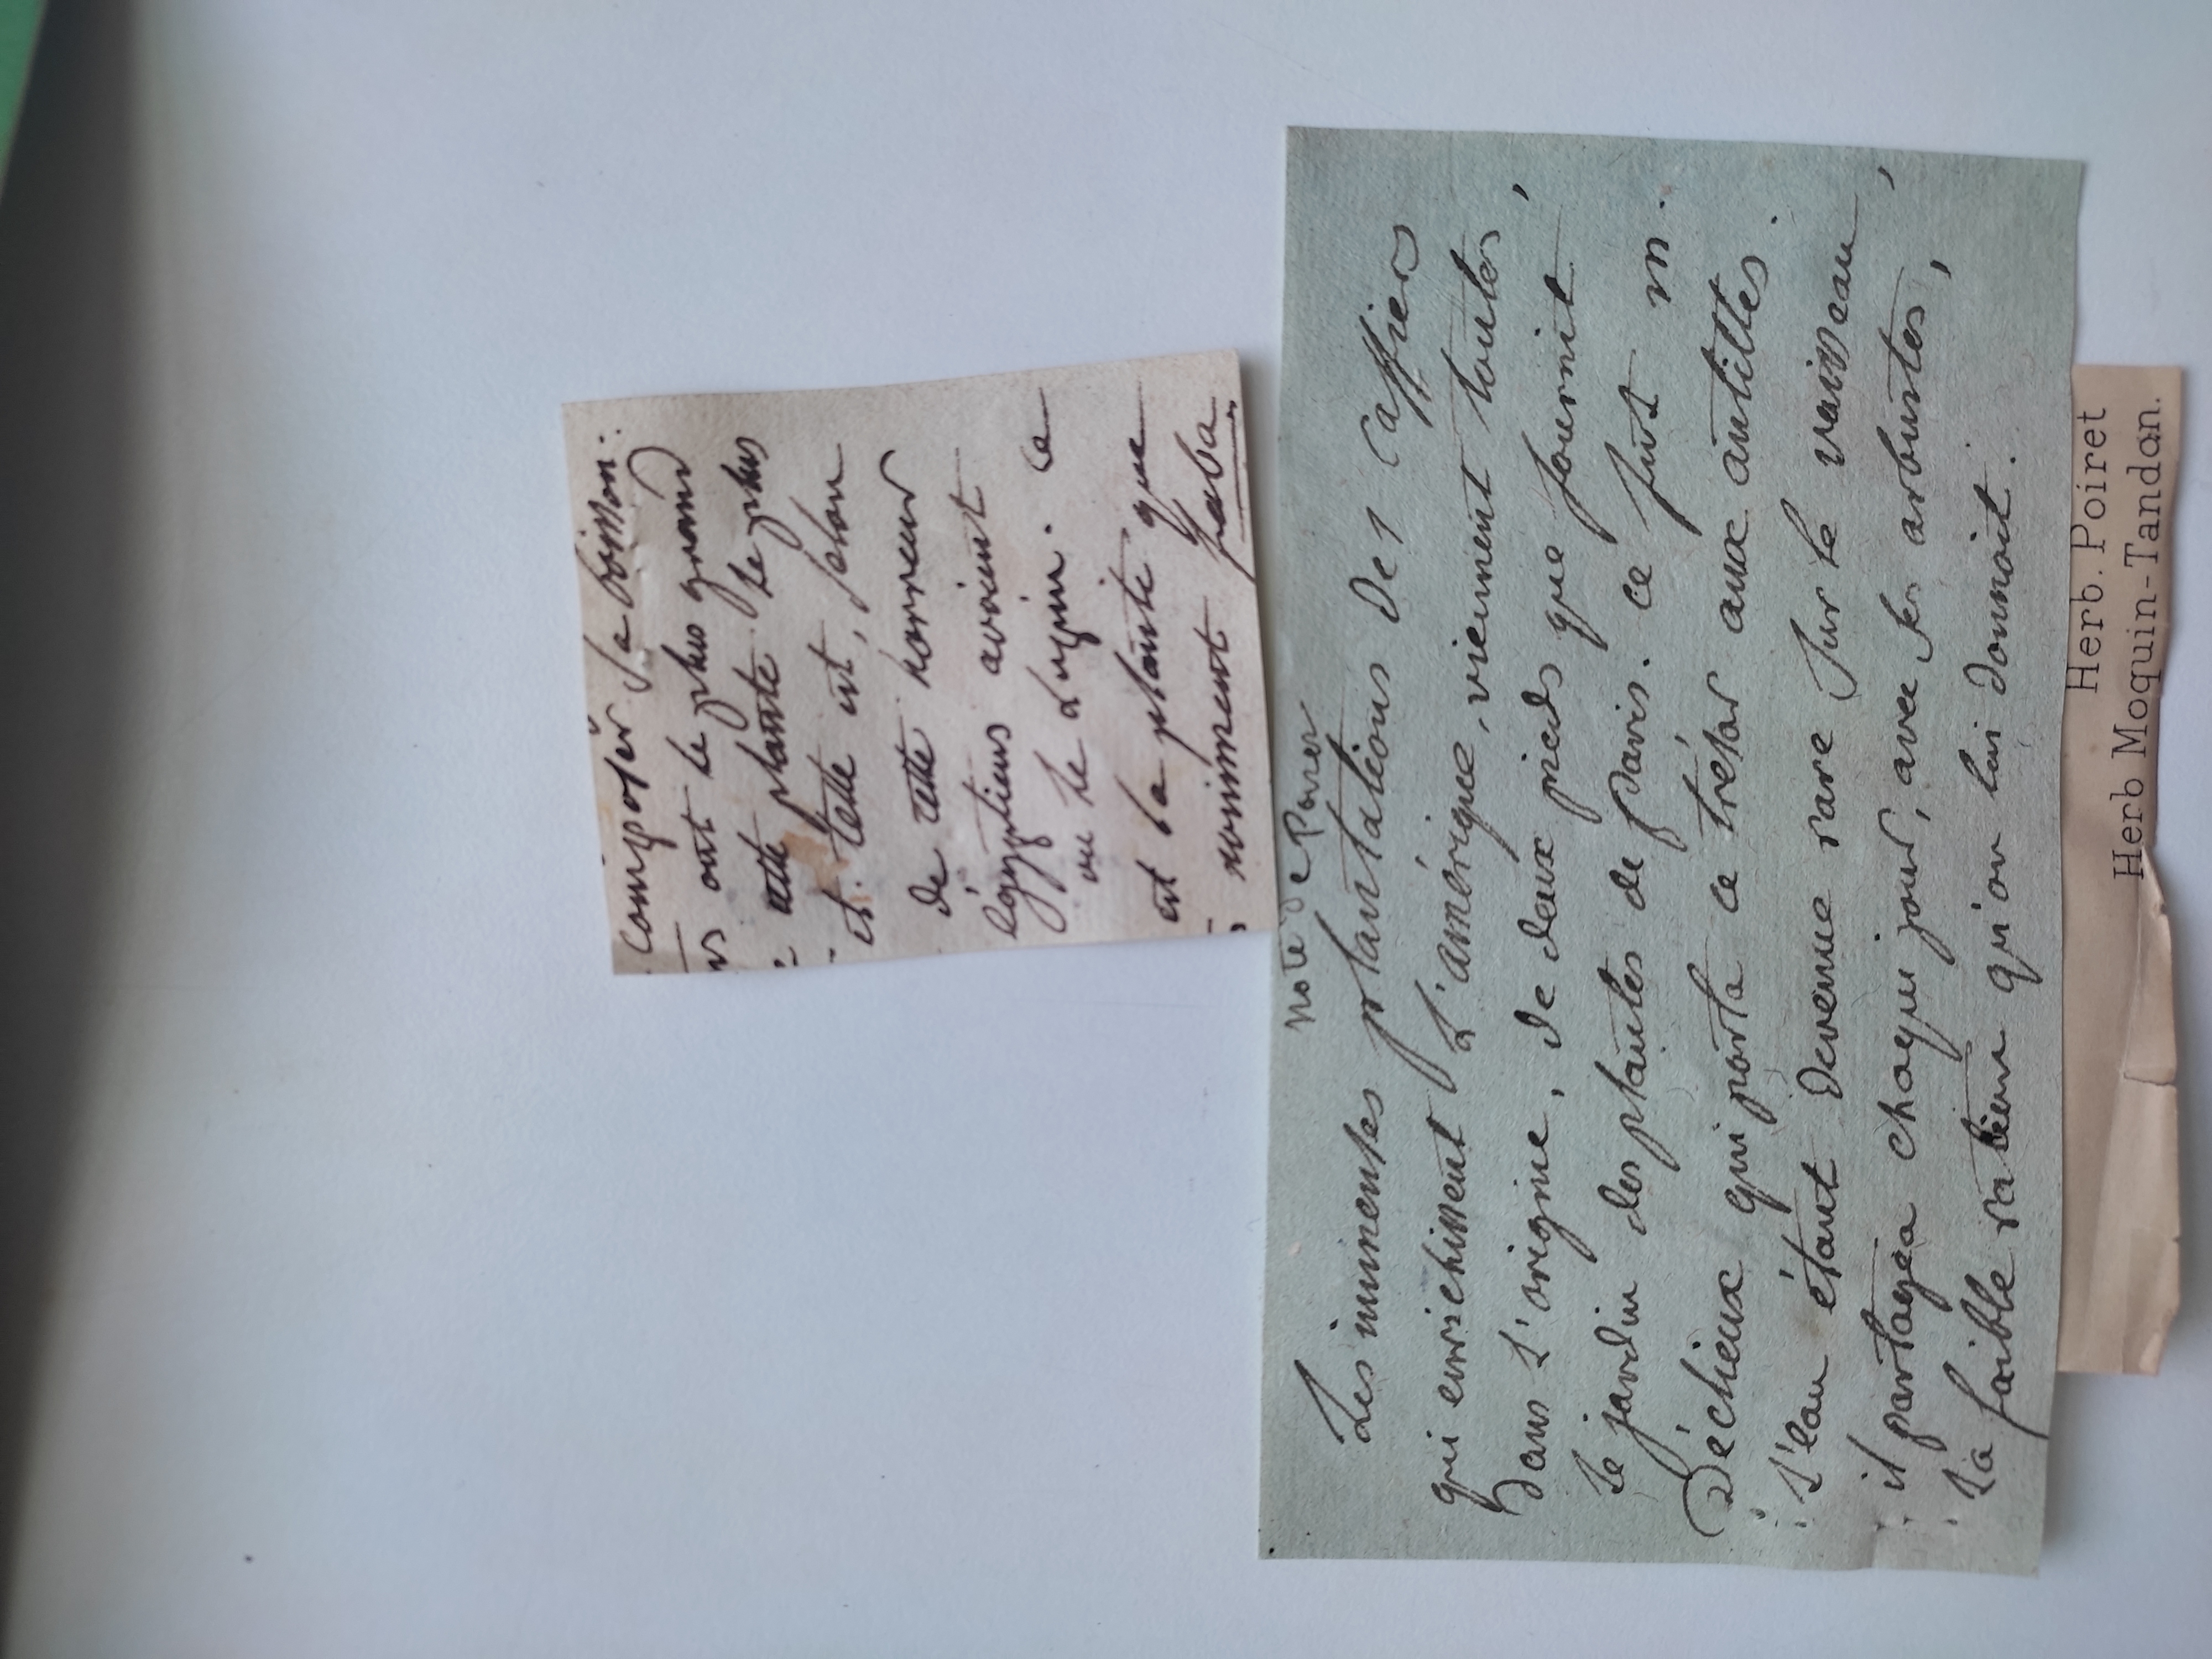 composer sa boisson.
ont le plus grand
cette plante le plus
et. telle est, selon
de cette horreur
égyptiens avoient
vu le Lupin. Ce
est la plante que
nomment faba
note de Poiret
Les immenses plantations des Caffiers
qui enrichissent L'amérique, viennent toutes,
Dans L'origine, de deux pieds que fournit
Le jardin des plantes de paris. ce fut m.
Déclieux qui porta ce trésor aux antilles.
L'eau étant devenue rare sur le vaisseau,
il partagea chaque jour, avec ses arbustes,
La faible ration qu'on lui donnoit.
Herb. Poiret
Herb Moquin-Tandon.